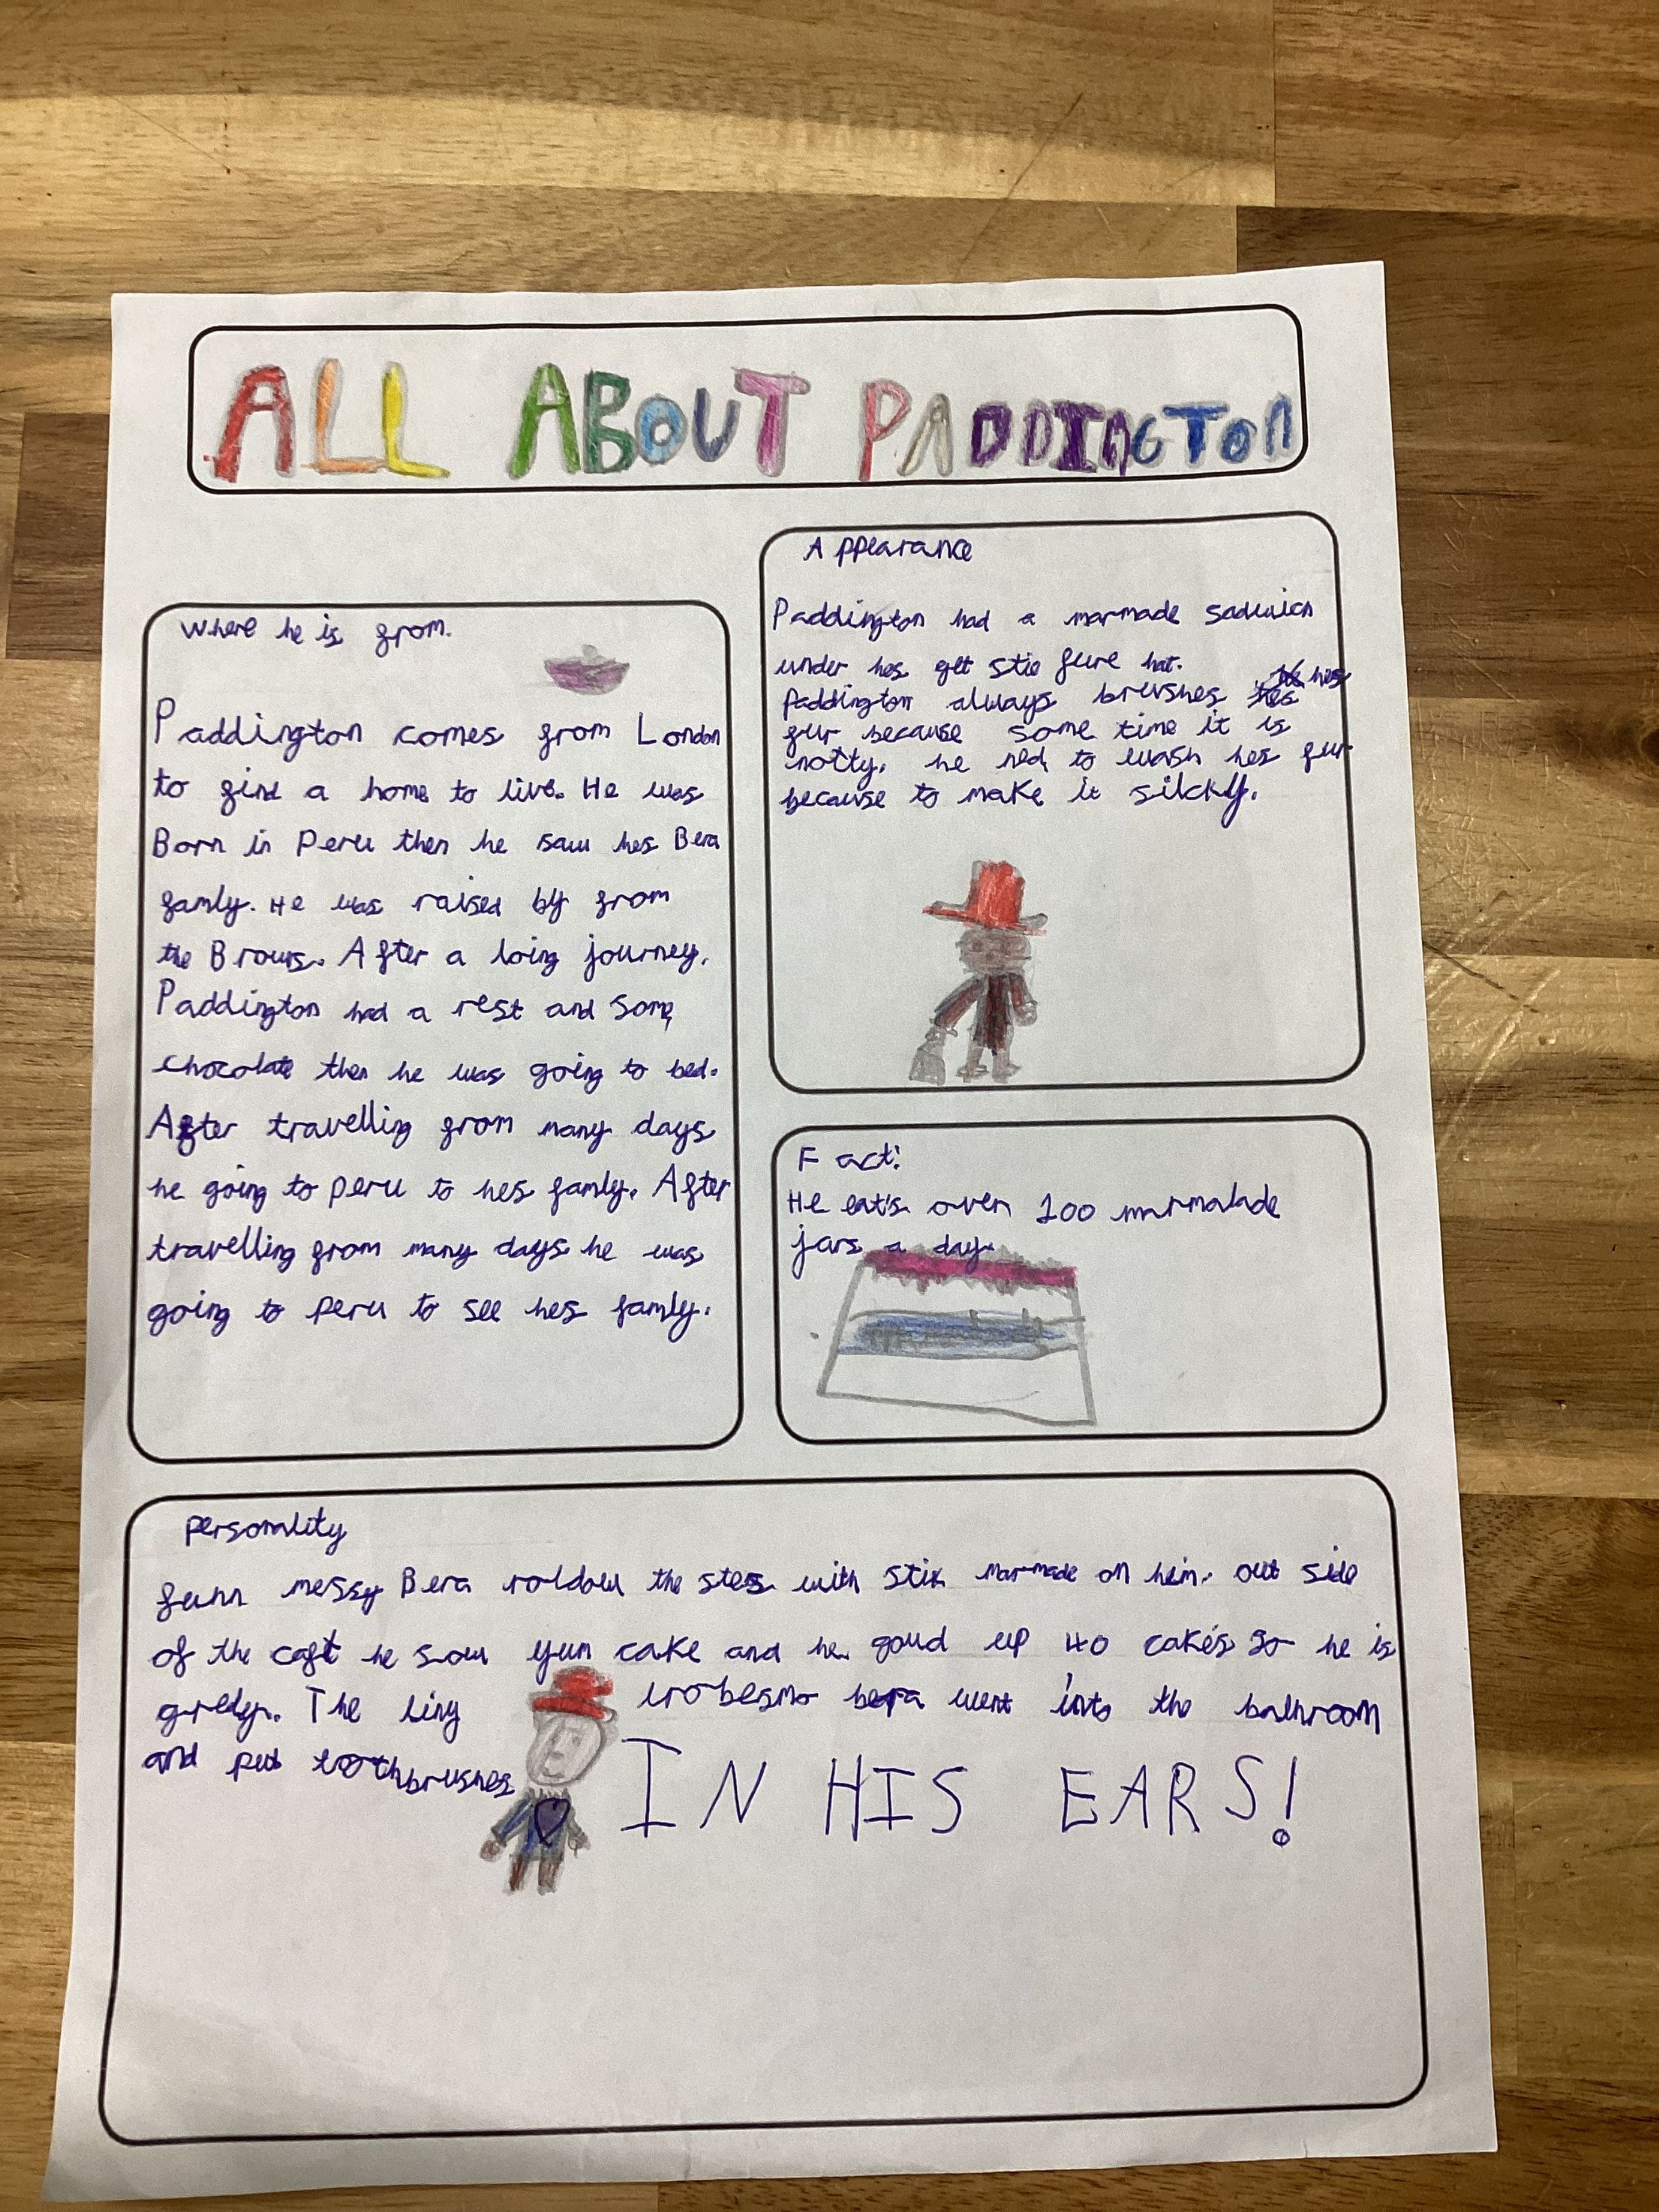 ALL ABOUT PADDINGTON
Where he is from.
Paddington comes from London
to find a home to live. He was
Born in Peru then he saw hes Bera
famly. He was raised by from
the Brows. After a loing journey.
Paddington had a rest and some
chocolate then he was going to bed.
After travelling from many days
he going to peru to hes famly. After
travelling from many days he was
going to peru to see hes famly.
Appearance
Paddington had a marmade sadwich
under hes get stie fure hat.
Paddington always brushes hes
fur because some time it is
notty. he ned to wash hes fur
because to make it silcky.
Fact:
He eat's over 100 marmalade
jars a day.
personality
funn messy Bera roldow the stes with stix marmade on him. out side
of the caft he sow yum cake and he goud up 40 cake's so he is
gredy. The liny bera went into the bathroom
and put toothbrushes IN HIS EARS!